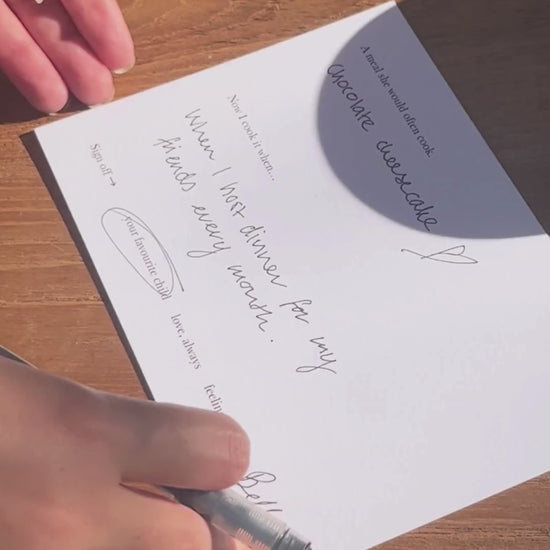 A meal she would often cook.
Chocolate cheesecake
Now I cook it when...
When I host dinner for my
friends every month.
Sign off →
Your favourite child
love, always
Bell